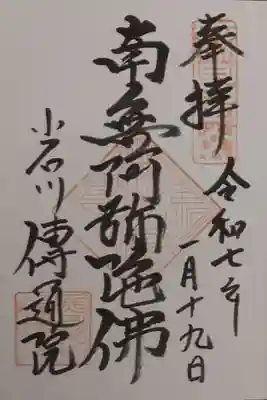 奉拝
令和七年
一月十九日
南無阿弥陀佛
小石川
傳通院